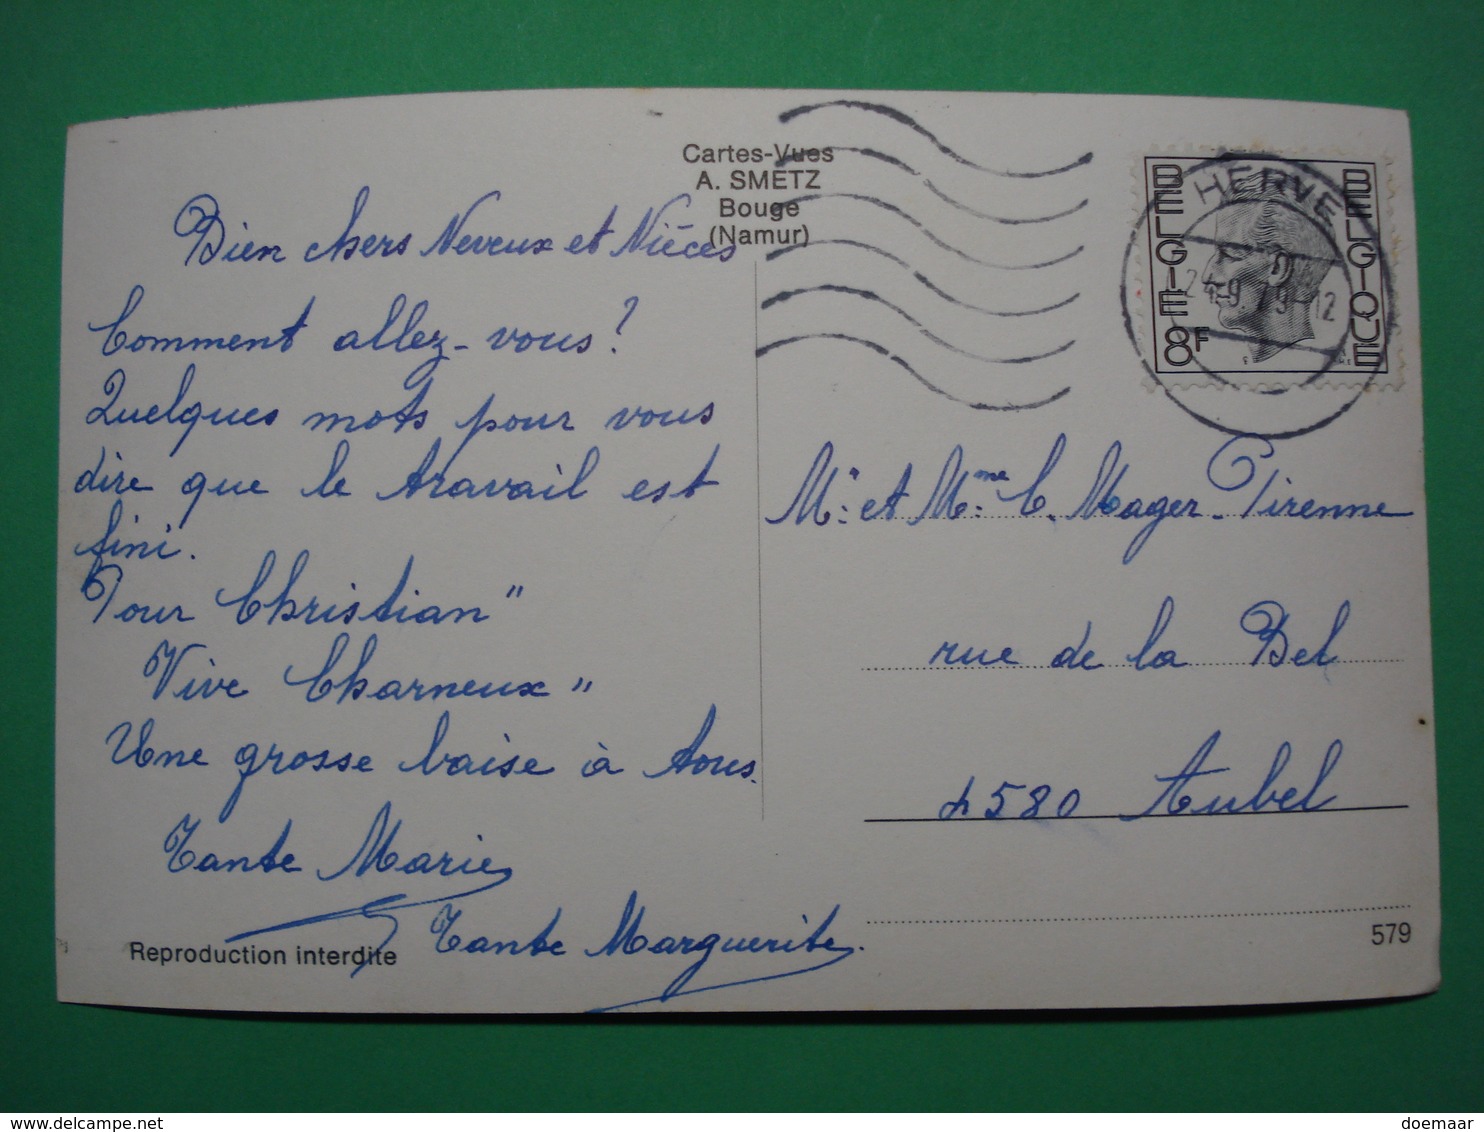 Cartes-Vues
A. SMETZ
Bouge
(Namur)
Bien chers Neveux et Nièces
Comment allez-vous?
Quelques mots pour vous
dire que le travail est
fini.
Pour Christian"
Vive Charneux"
Une grosse baise à tous.
Tante Marie
Tante Marguerite.
Reproduction interdite
BELGIE 8F
BELGIQUE
HERVE
24-9.79-12
Mr: et Mme: C. Mager-Pirenne
rue de la Bel
4580 Aubel
579
delcampe.net
doemaar